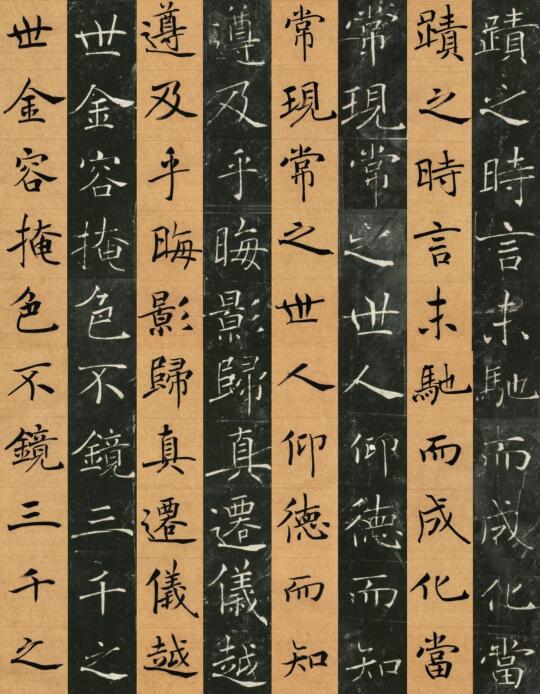 蹟之時言未馳而成化當
蹟之時言未馳而成化當
常現常之世人仰德而知
常現常之世人仰德而知
遵及乎晦影歸真遷儀越
遵及乎晦影歸真遷儀越
世金容掩色不鏡三千之
世金容掩色不鏡三千之